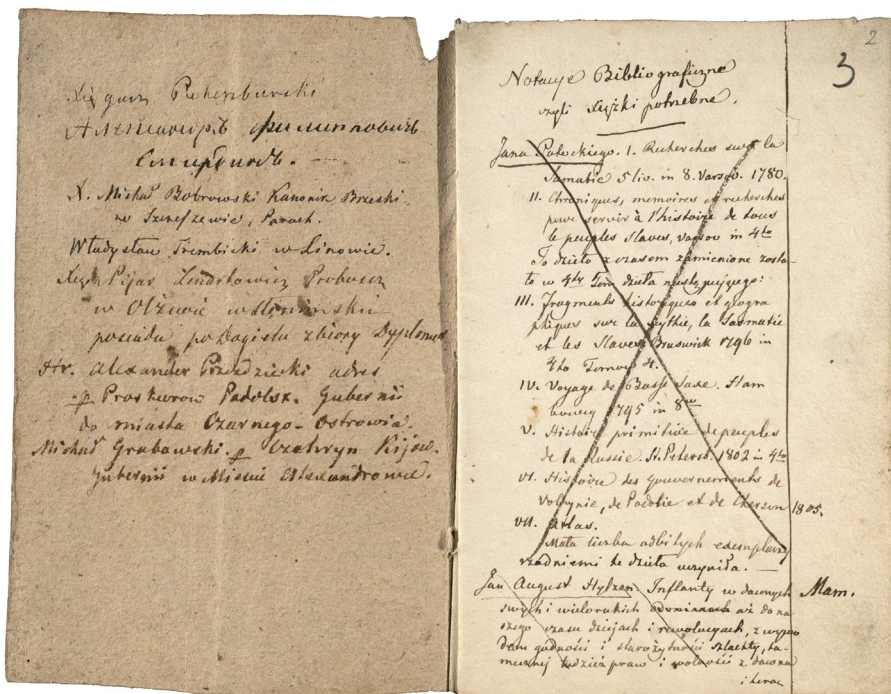 Xięgarz Petersburski
Александръ Филипповичь
Смирдинъ.
X. Michał Bobrowski Kanonik Brzeski
w Szereszewie, Paroch.
Władysław Trembicki w Linowie.
Xiądz Pijar Proboszcz
w
posiada po Dogielu zbiory Dyplomat
Hr. Alexander Przezdziecki adres
p. Proskurow Podolsk. Gubernii
do miasta Czarnego-Ostrowia.
Michał Grabowski. p. Czehryn Kijow.
Gubernii w Mieście Alexandrowie.
2
3
Notacye Bibliograficzne
czyli Xiążki potrzebne.
Jana Potockiego. I. Recherches sur la
Sarmatie 5 liv. in 8. Varsov. 1780.
II. Chroniques, memoires et recherches
pour servir à l'histoire de tous
le peuples Slaves, varsov in 4to
To dzieło z czasem zamienione zosta-
ło w 4ty Tom dzieła następującego:
III. Fragments historiques et geogra
phiques sur la Scythie, la Sarmatie
et les Slaves Bruswick 1796 in
4to Tomow 4.
IV. Voyage de Basse Saxe. Ham
bourg 1795 in 8vo
V. Histoire primitive de peuples
de la Russie. St. Petersb. 1802 in 4to
VI. Histoire des Gouvernements de
Volhynie, de Podolie et de Cherson 1805.
VII. Atlas.
Mała liczba odbitych exemplarzy
rzadniemi te dzieła uczyniła. —
Jan August Hylzen Inflanty w dawnych Mam.
swych i wielorakich aż do na
szego czasu dziejach i rewolucyach, z wywo
dem godności i starożytności szlachty, ta-
mecznej tudzież praw i wolności z dawna
i teraz